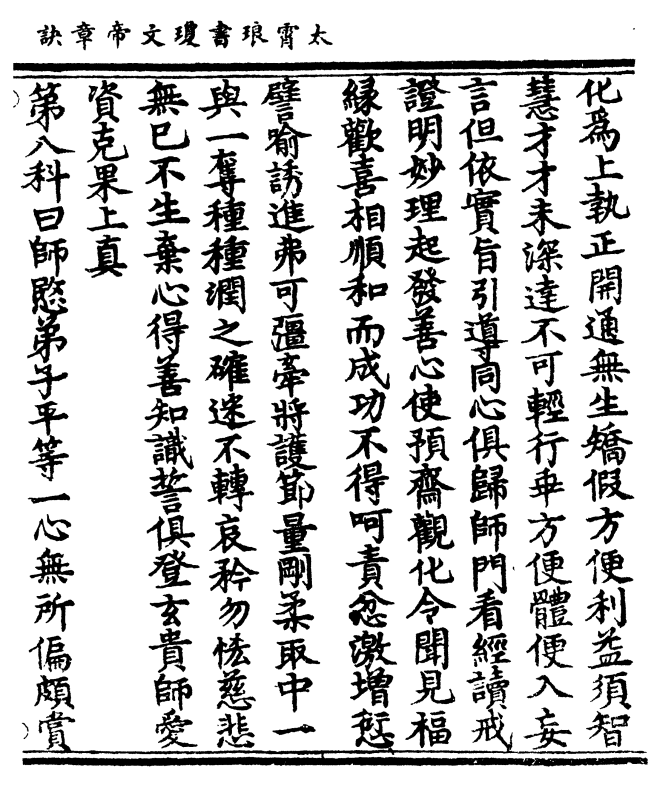 太霄琅書瓊文帝章訣
化爲上執正開通無生矯假方便利益須智
慧才才未深達不可輕行乖方便體便入妄
言但依實旨引導同心俱歸師門看經讀戒
證明妙理起發善心使預齋觀化令聞見福
緣歡喜相順和而成功不得呵責忿激增愆
譬喻誘進弗可彊牽將護節量剛柔取中一
與一奪種種潤之確迷不轉哀矜勿恡慈悲
無已不生棄心得善知識誓俱登玄貴師愛
資克果上真
第八科曰師愍弟子平等一心無所偏頗賞